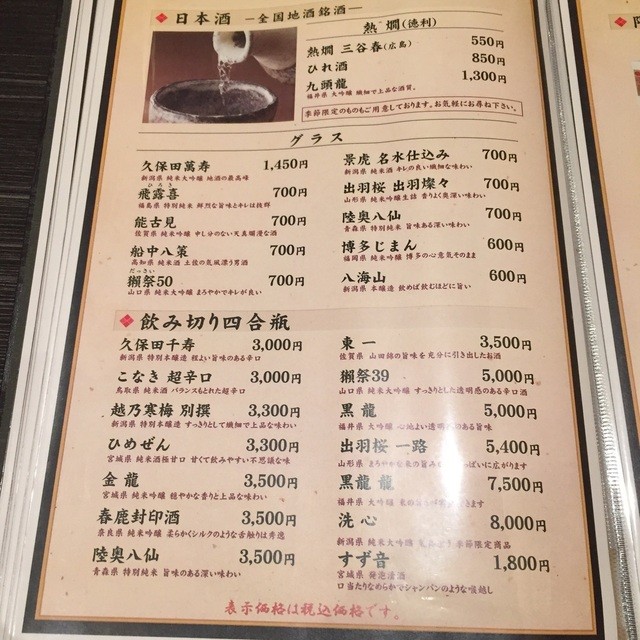 日本酒 ー全国地酒銘酒ー
熱燗(徳利)
熱燗 三谷春(広島) 550円
ひれ酒 850円
九頭龍 1,300円
福井県 大吟醸 繊細で上品な酒質。
季節限定のものもご用意しております。お気軽にお尋ね下さい。
グラス
久保田萬寿 1,450円
新潟県 純米大吟醸 地酒の最高峰
ひろき
飛露喜 700円
福島県 特別純米 鮮烈な旨味とキレは抜群
能古見 700円
佐賀県 純米吟醸 申し分のない天真爛漫な酒
船中八策 700円
高知県 純米酒 土佐の気風漂う男酒
だっさい
獺祭50 700円
山口県 純米大吟醸 まろやかでキレが良い
景虎 名水仕込み 700円
新潟県 純米酒 キレの良い繊細な味わい
出羽桜 出羽燦々 700円
山形県 純米吟醸生詰 香りよく奥深い味わい
陸奥八仙 700円
青森県 特別純米 旨味ある深い味わい
博多じまん 600円
福岡県 純米吟醸 博多の心意気そのまま
八海山 600円
新潟県 本醸造 飲めば飲むほどに旨い
飲み切り四合瓶
久保田千寿 3,000円
新潟県 特別本醸造 程よい旨味のある辛口
こなき 超辛口 3,000円
鳥取県 純米酒 バランスもとれた超辛口
越乃寒梅 別撰 3,300円
新潟県 特別本醸造 すっきりとして繊細で上品な味わい
ひめぜん 3,300円
宮城県 純米酒極甘口 甘くて飲みやすい不思議な味
金龍 3,500円
宮城県 純米吟醸 穏やかな香りと上品な味わい
春鹿封印酒 3,500円
奈良県 純米吟醸 柔らかくシルクのような舌触りは秀逸
陸奥八仙 3,500円
青森県 特別純米 旨味のある深い味わい
東一 3,500円
佐賀県 山田錦の旨味を充分に引き出したお酒
獺祭39 5,000円
山口県 純米大吟醸 すっきりとした透明感のある辛口酒
黒龍 5,000円
福井県 大吟醸 心地よい透明感のある旨味
出羽桜 一路 5,400円
山形県 まろやかな米の旨み いっぱいに広がります
黒龍 龍 7,500円
福井県 大吟醸 米の きます
洗心 8,000円
新潟県 純米大吟醸 季節限定商品
すず音 1,800円
宮城県 発泡清酒
口当たりなめらかでシャンパンのような喉越し
表示価格は税込価格です。